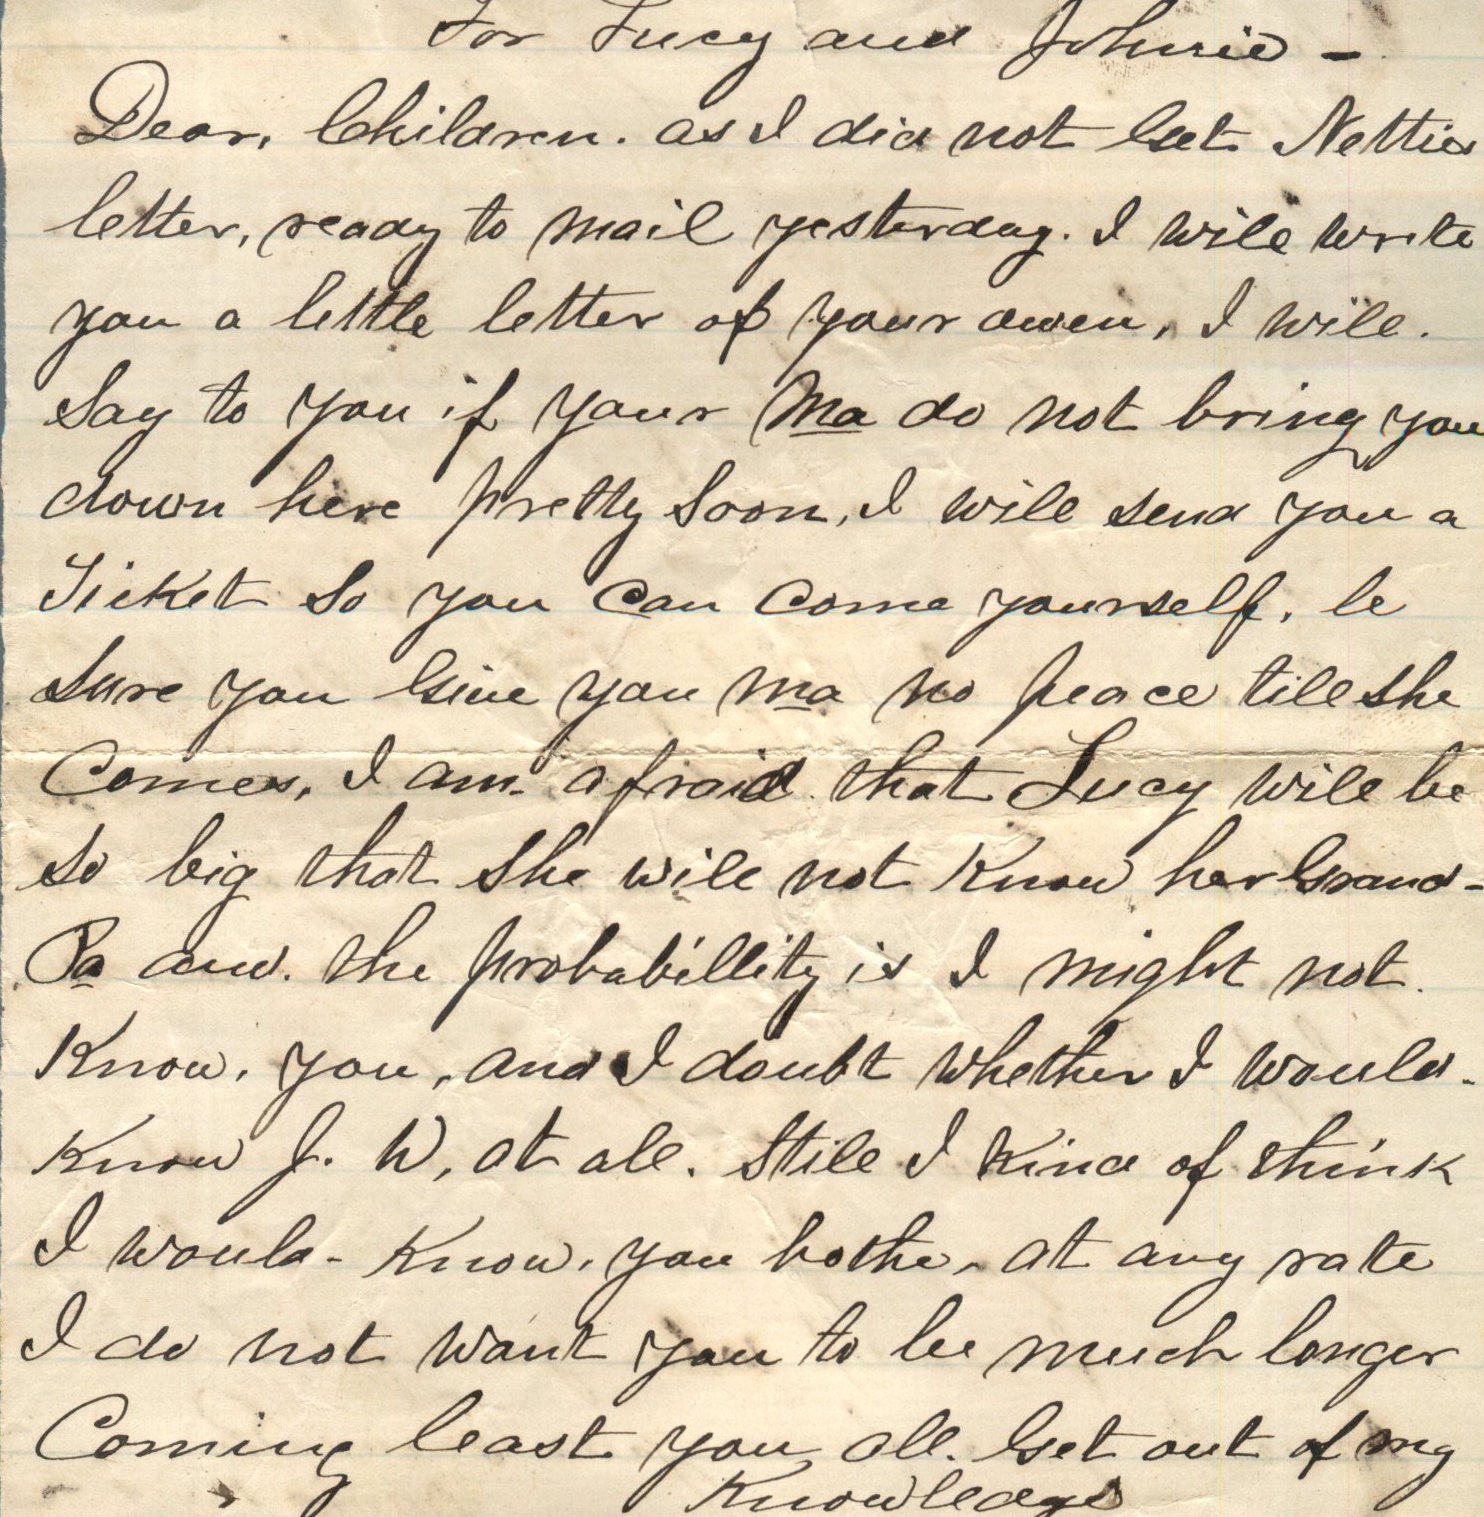 For Lucy and Johnie -
Dear, Children. as I did not Get Netties
letter, ready to mail yesterday. I will write
you a little letter of your owen, I will.
Say to you if your Ma do not bring you
down here pretty Soon, I will send you a
Ticket So you Can Come yourself, be
Sure you Give you ma no peace till she
Comes, I am afraid that Lucy will be
So big that She will not Know her Grand-
Pa and. the probabillity is I might not.
Know, you, and I doubt whether I would.
Know J. W, at all. Still I Kind of think
I would- Know, you bothe, at any rate
I do not want you to be much longer
Coming least you all. Get out of my
Knowledge